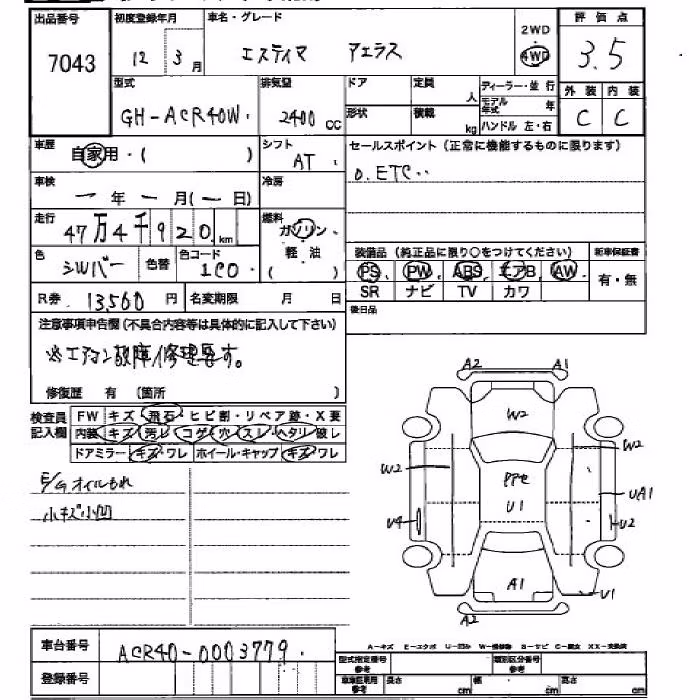 出品番号 初度登録年月 車名・グレード 2WD 評価点
7043 12 3月 エスティマ アエラス 4WD 3.5
型式 排気量 ドア 定員 人 ディーラー・並行 外装 内装
GH-ACR40W 2400 cc 形状 積載 kg モデル年式 年 C C
ハンドル 左・右
車歴 自家用・( ) シフト AT セールスポイント (正常に機能するものに限ります)
0. ETC
車検 ー年 ー月(ー日) 冷房
走行 47万4千920km 燃料 ガソリン、
軽・油
( )
色 シルバー 色替 色コード 1C0 装備品 (純正品に限り○をつけてください) 新車保証書
PS PW ABS エアB AW 有・無
SR ナビ TV カワ
R券 13,560円 名変期限 月 日 後日品
注意事項申告欄(不具合内容等は具体的に記入して下さい)
※エアコン故障修理要す。
修復歴 有 (箇所 )
検査員記入欄 FW キズ・飛石・ヒビ割・リペア跡・X要
内装 キズ・汚レ・コゲ・穴・スレ・ヘタリ・破レ
ドアミラー キズ・ワレ ホイール・キャップ キズ・ワレ
E/Gオイルもれ
小キズ小凹
A2 A1
W2
W2 W2
PPセ
U1 UA1
U4 U2
A1
U1
A2
車台番号 ACR40-0003779
A-キズ E-エクボ U-凹み W-補修跡 S-サビ C-腐食 XX-交換済
登録番号 型式指定番号 参考 類別区分番号 参考
車体証寸用 参考 長さ cm 幅 cm 高さ cm